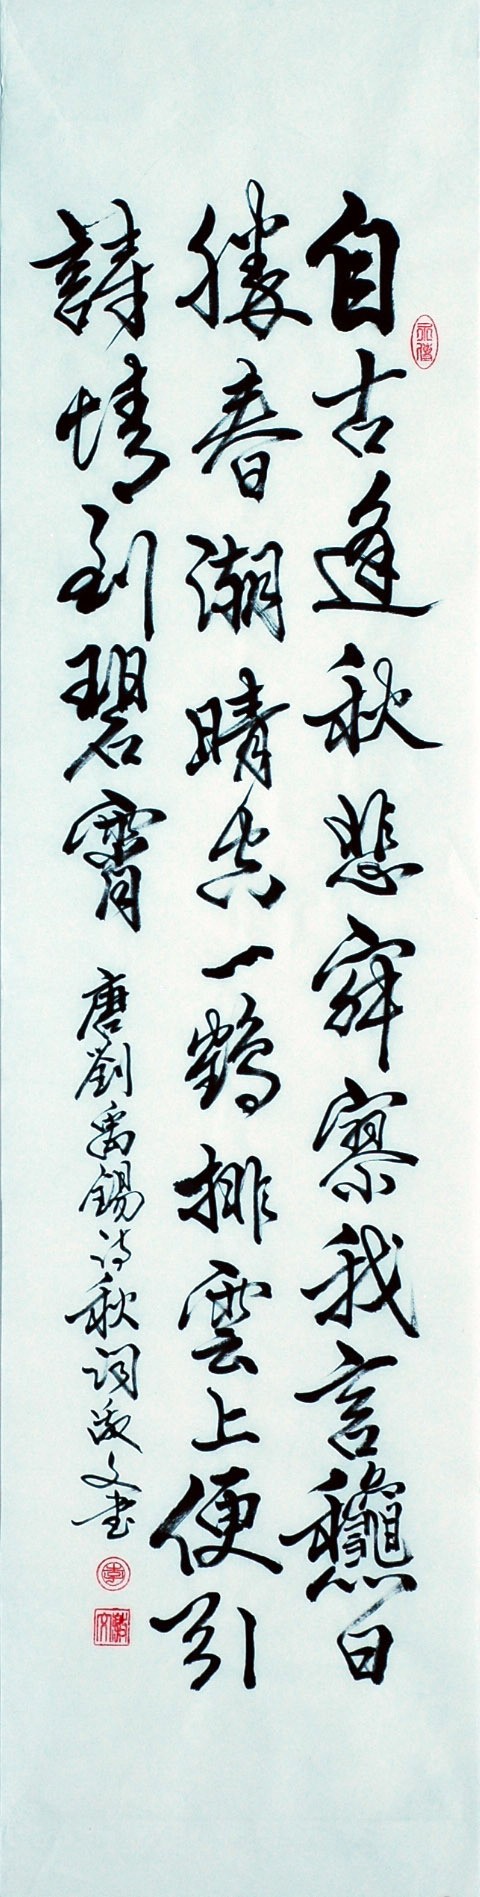 自古逢秋悲寂寥我言龝日
勝春潮晴空一鶴排雲上便引
詩情到碧霄 唐劉禹錫诗秋词文书